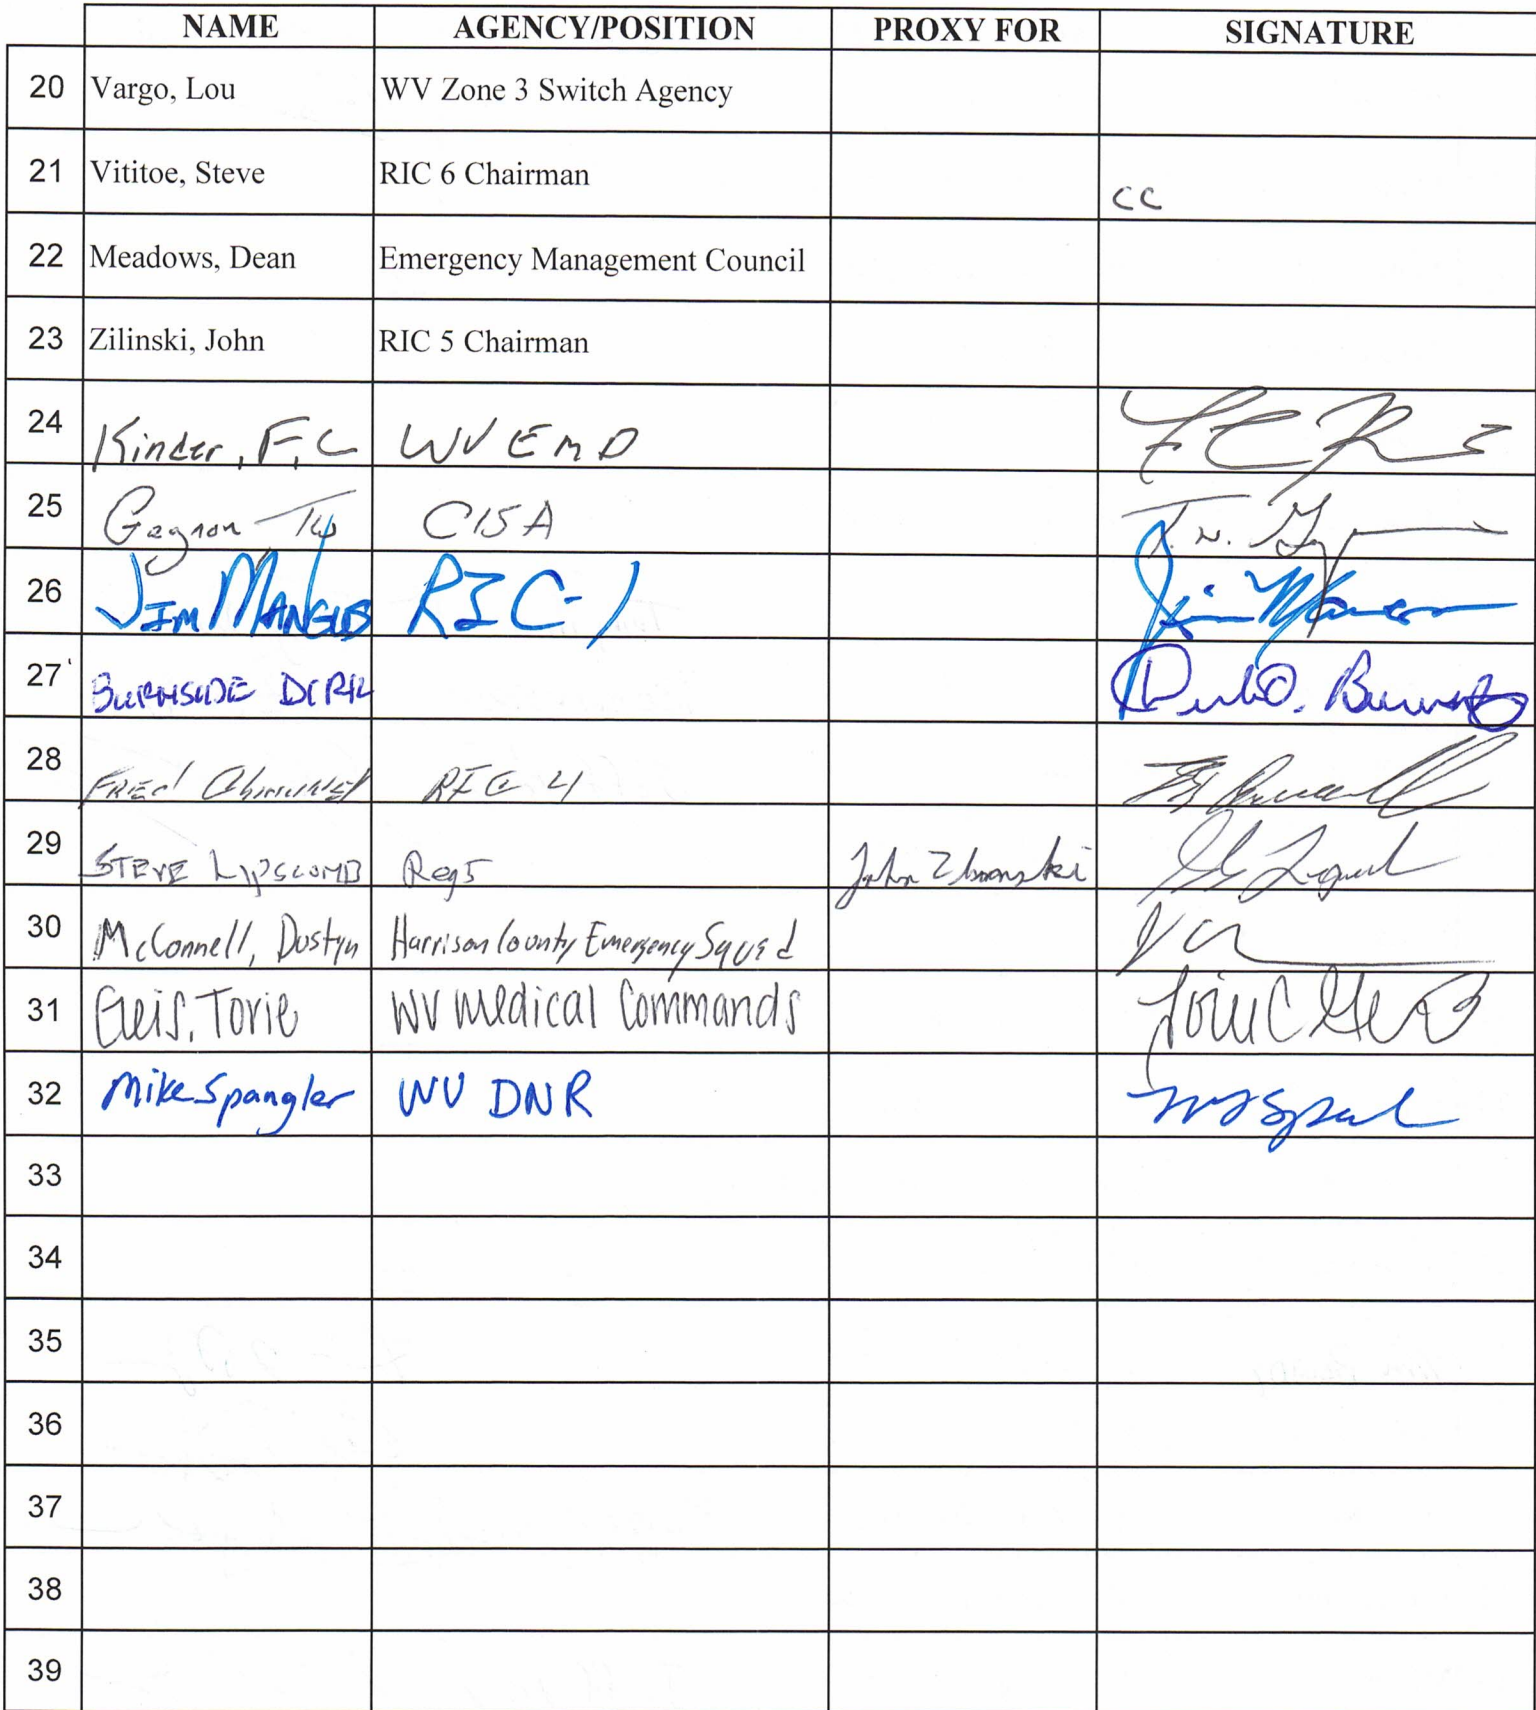 NAME AGENCY/POSITION PROXY FOR SIGNATURE
20 Vargo, Lou WV Zone 3 Switch Agency
21 Vititoe, Steve RIC 6 Chairman cc
22 Meadows, Dean Emergency Management Council
23 Zilinski, John RIC 5 Chairman
24 Kinder, F.C WV EMD
25 Gagnon CISA
26 JIM MANGUS RIC-1
27 BURNSIDE DIRK
28 FRED RIC 4
29 STEVE LIPSCOMB Reg 5 John
30 McConnell, Dustyn Harrison County Emergency Squad
31 Geis, Torie WV Medical Commands
32 Mike Spangler WV DNR
33
34
35
36
37
38
39